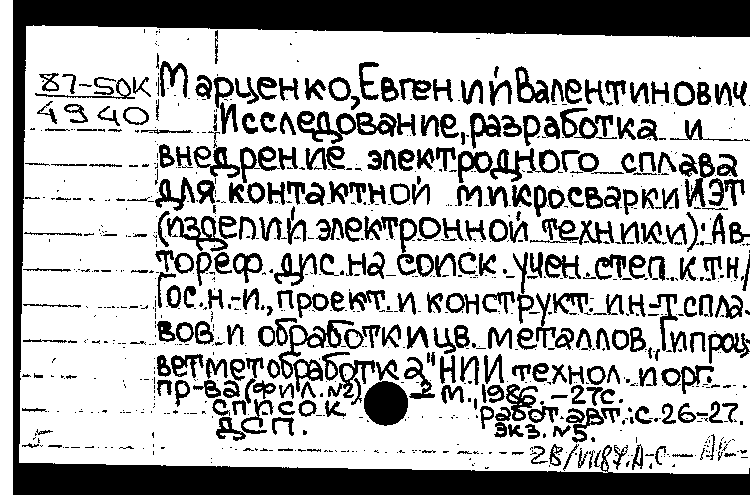 87-50К
4940
Марценко, Евгений Валентинович
Исследование, разработка и
внедрение электродного сплава
для контактной микросварки ИЭТ
(изделий электронной техники): Ав-
тореф. дис. на соиск. учен. степ. к.т.н./
Гос. н.-и., проект. и конструкт. ин-т спла-
вов и обработки цв. металлов „Гипроц-
ветметобработка" НИИ технол. и орг.
пр-ва (фил. №2) М., 1986. – 27с.
список работ авт.: с. 26-27.
ДСП. экз. №5.
28/VII87. А-С.